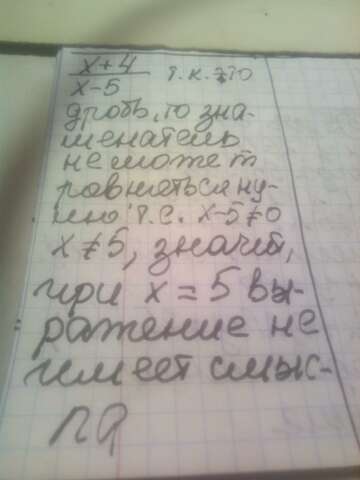 x+4
x-5 т.к. это
дробь, то зна-
менатель
не может
ровняться ну-
лю т.е. x-5≠0
x≠5, значит,
при x=5 вы-
ражение не
имеет смыс-
ла